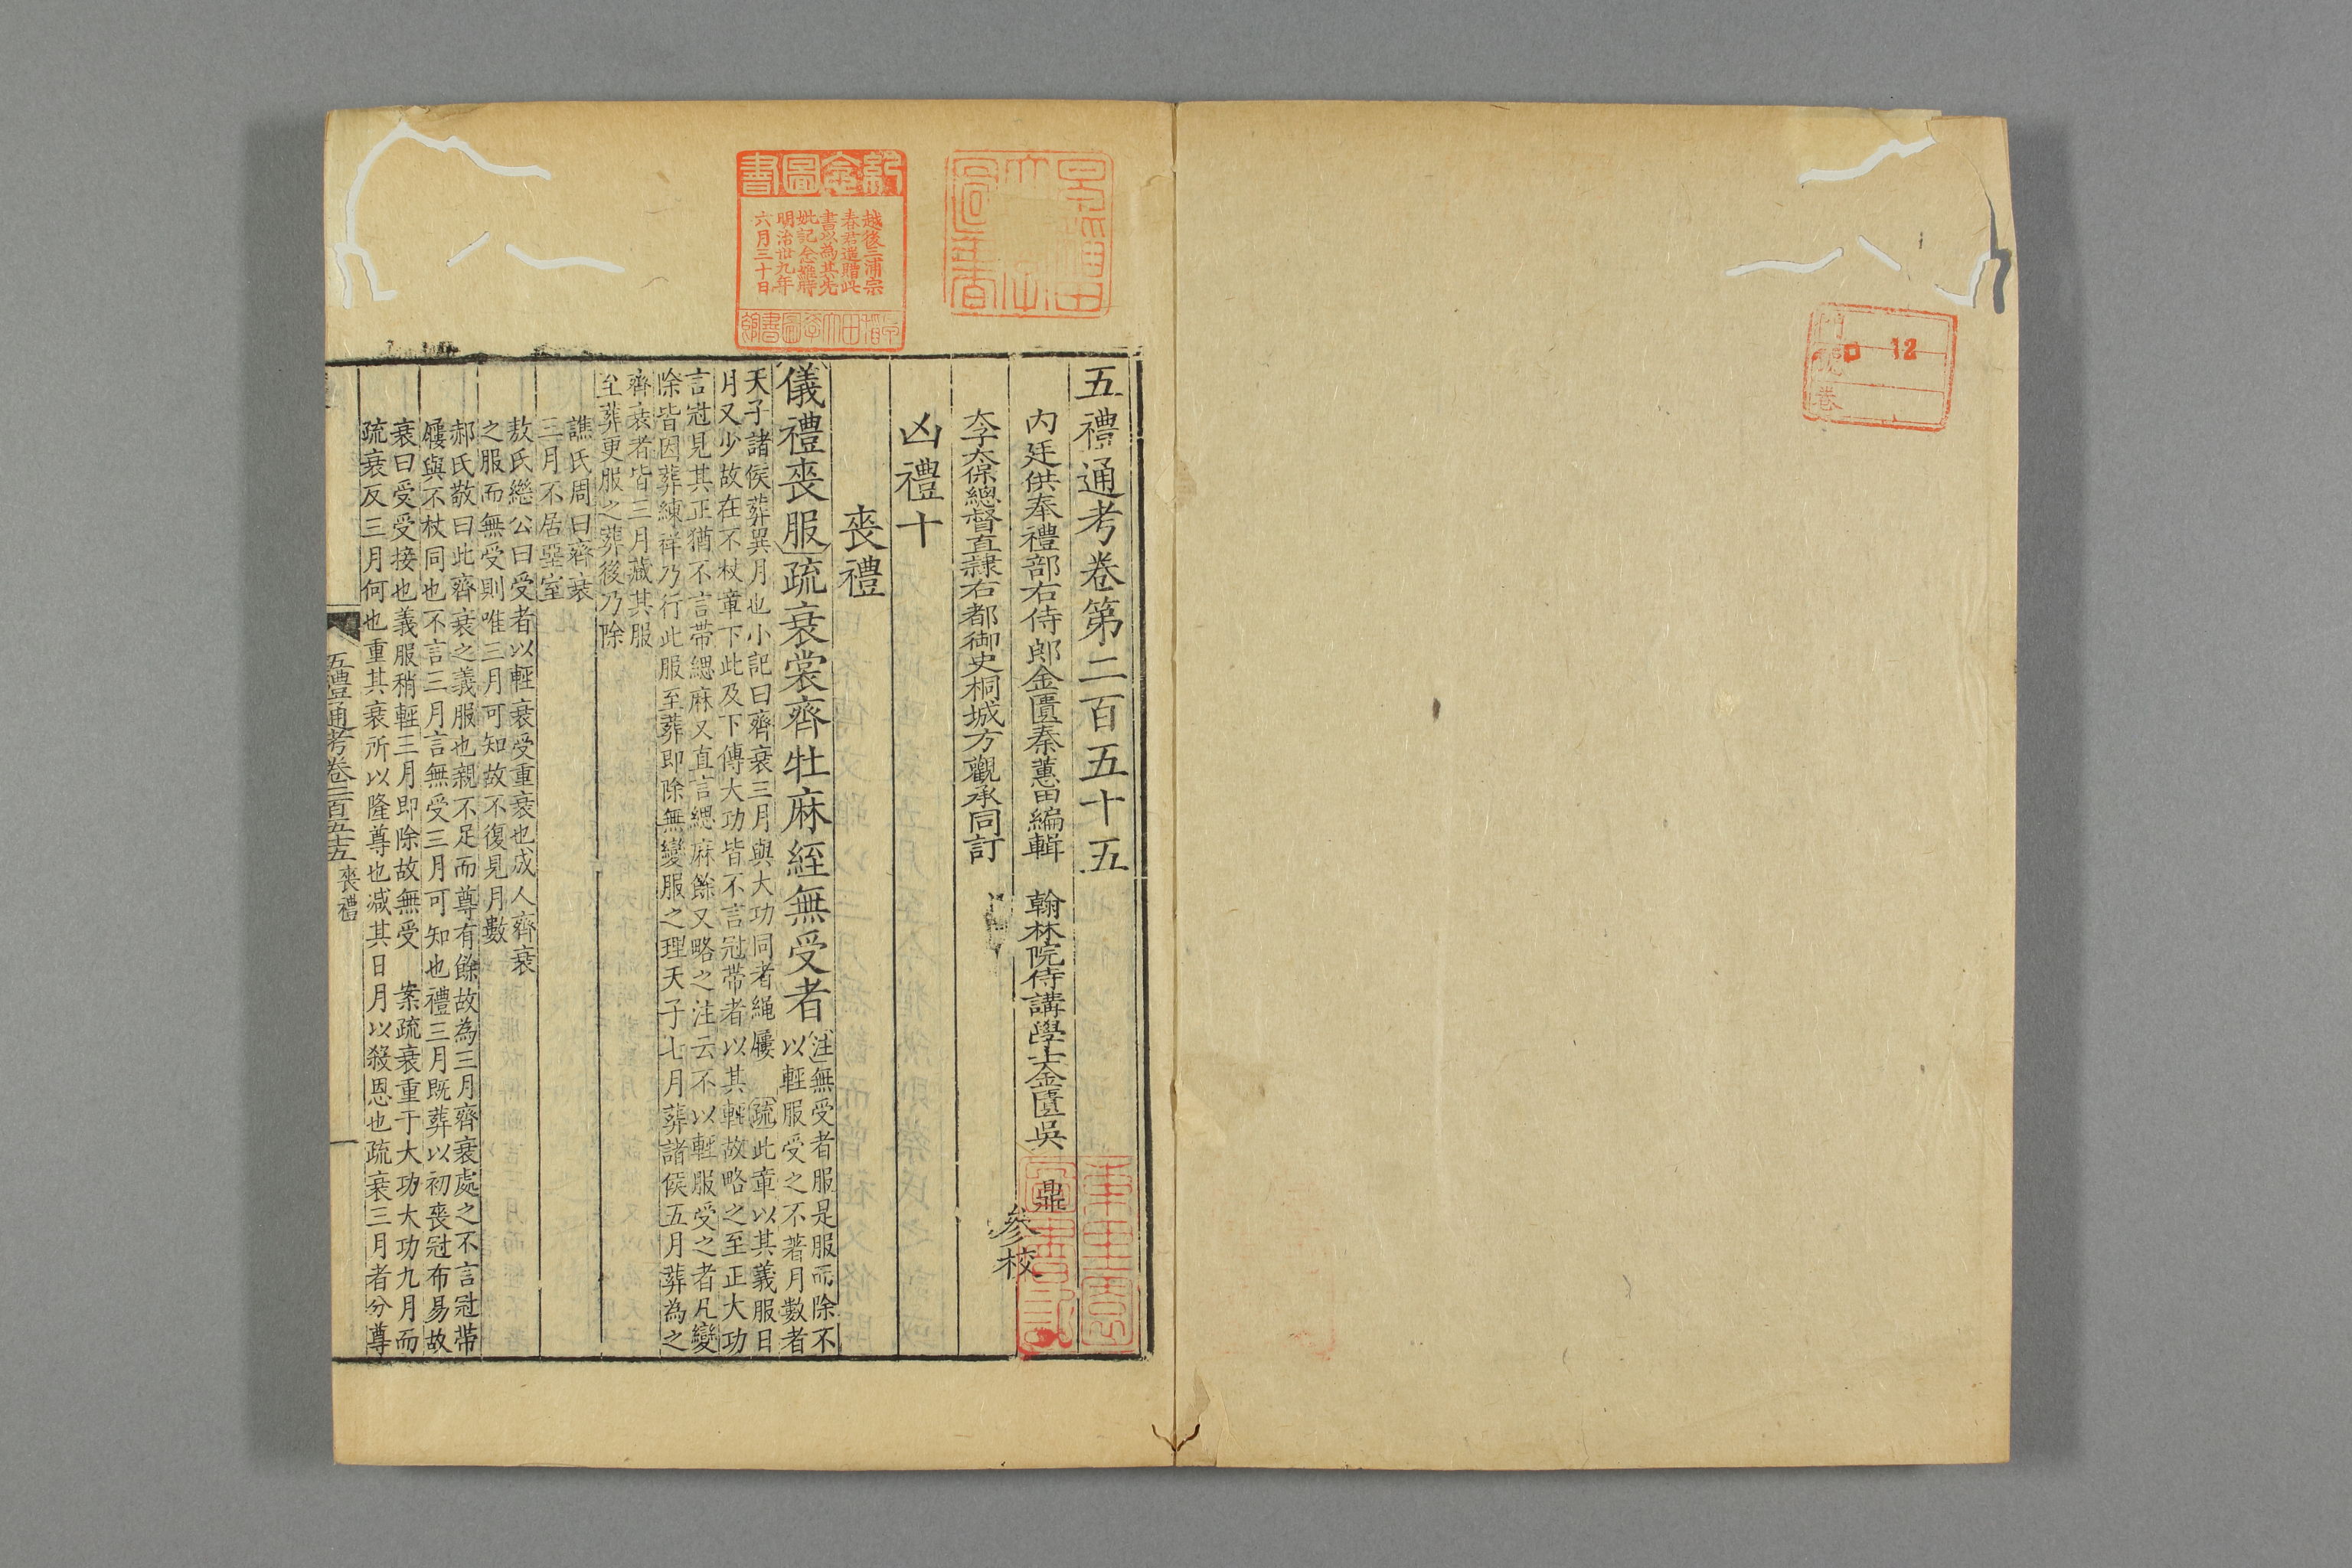 五禮通考卷第二百五十五
內廷供奉禮部右侍郎金匱秦蕙田編輯　翰林院侍講學士金匱吳　鼎
太子太保總督直隸右都御史桐城方觀承同訂　參校
凶禮十
喪禮
儀禮喪服疏衰裳齊牡麻絰無受者
注無受者服是服而除不
以輕服受之不著月數者
天子諸侯葬異月也小記曰齊衰三月與大功同者繩屨　疏此章以其義服日
月又少故在不杖章下此及下傳大功皆不言冠帶者以其輕故略之至正大功
言冠見其正猶不言帶緦麻又直言緦麻餘又略之注云不以輕服受之者凡變
除皆因葬練祥乃行此服至葬即除無變服之理天子七月葬諸侯五月葬為之
齊衰者皆三月藏其服
至葬更服之葬後乃除
譙氏周曰齊衰
三月不居堊室
敖氏繼公曰受者以輕衰受重衰也成人齊衰
之服而無受則唯三月可知故不復見月數
郝氏敬曰此齊衰之義服也親不足而尊有餘故為三月齊衰處之不言冠帶
屨與不杖同也不言三月言無受三月可知也禮三月既葬以初喪冠布易故
衰曰受受接也義服稍輕三月即除故無受　案疏衰重于大功大功九月而
疏衰反三月何也重其衰所以隆尊也減其日月以殺恩也疏衰三月者分尊
五禮通考卷二百五十五　喪禮
一
紀念圖書
越後三浦宗
春君遺贈此
書以為其先
妣記念維時
明治卅九年
六月三十日
門
號
卷
12